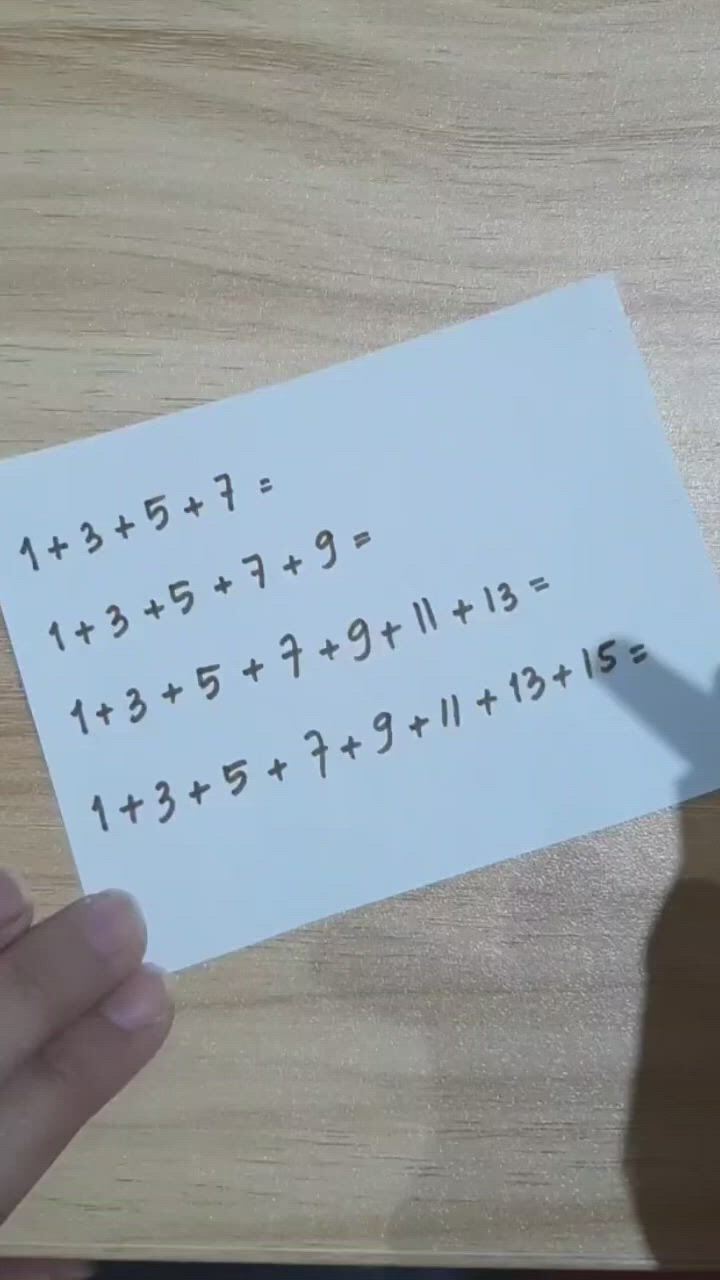 1+3+5+7=
1+3+5+7+9=
1+3+5+7+9+11+13=
1+3+5+7+9+11+13+15=